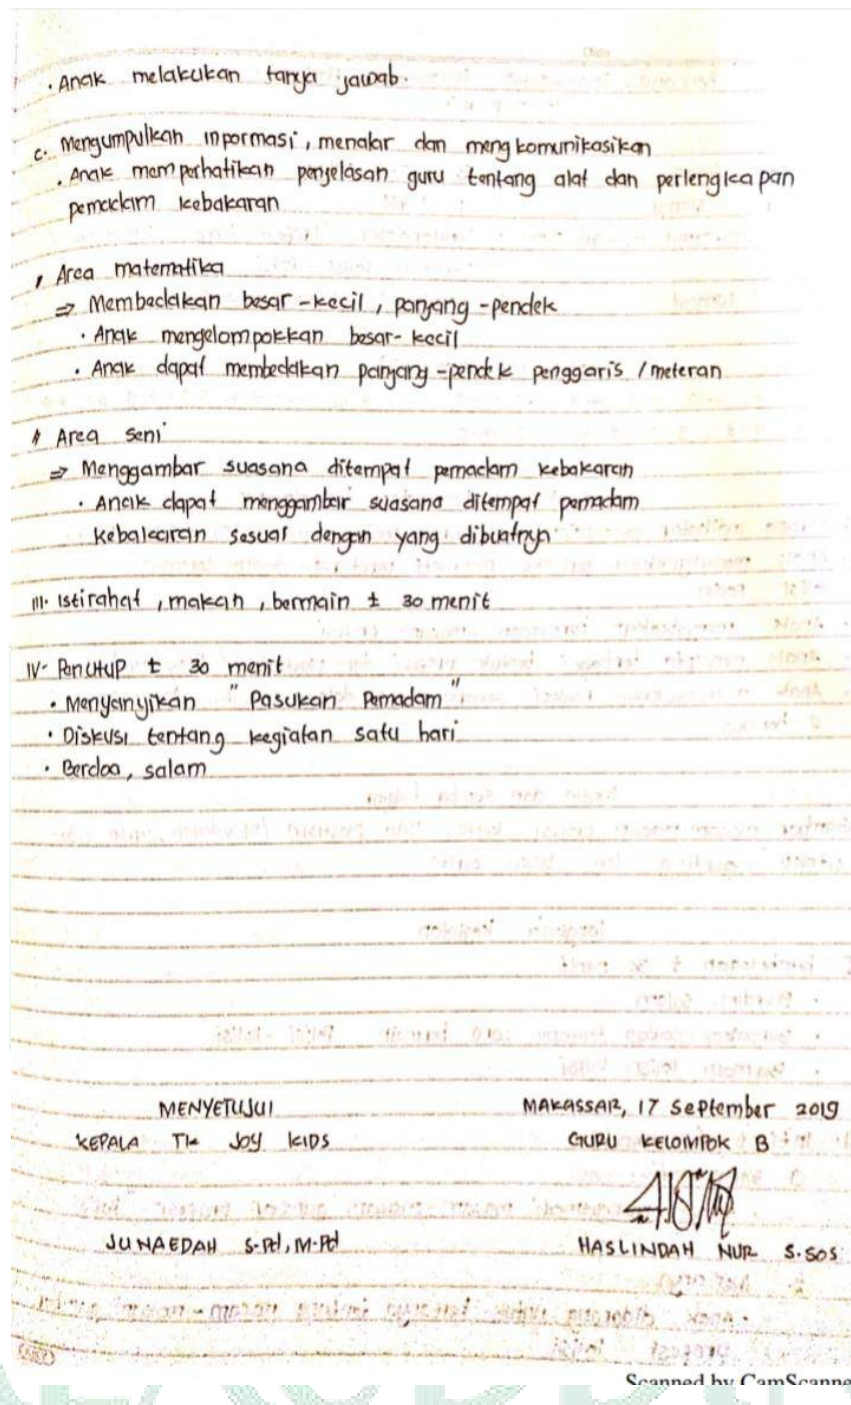 · Anak melakukan tanya jawab.
c. Mengumpulkan inpormasi, menalar dan mengkomunikasikan
· Anak memperhatikan penjelasan guru tentang alat dan perlengkapan
pemadam kebakaran
Area matematika
⇒ Membedakan besar-kecil, panjang-pendek
· Anak mengelompokkan besar-kecil
· Anak dapat membedakan panjang-pendek penggaris / meteran
Area seni
⇒ Menggambar suasana ditempat pemadam kebakaran
· Anak dapat menggambar suasana ditempat pemadam
kebakaran sesuai dengan yang dibuatnya
III. Istirahat, makan, bermain ± 30 menit
IV. Penutup ± 30 menit
· Menyanyikan "Pasukan Pemadam"
· Diskusi tentang kegiatan satu hari
· Berdoa, salam
MENYETUJUI MAKASSAR, 17 September 2019
KEPALA TK JOY KIDS GURU KELOMPOK B
JUNAEDAH S.Pd, M.Pd HASLINDAH NUR S.SOS
Scanned by CamScanne